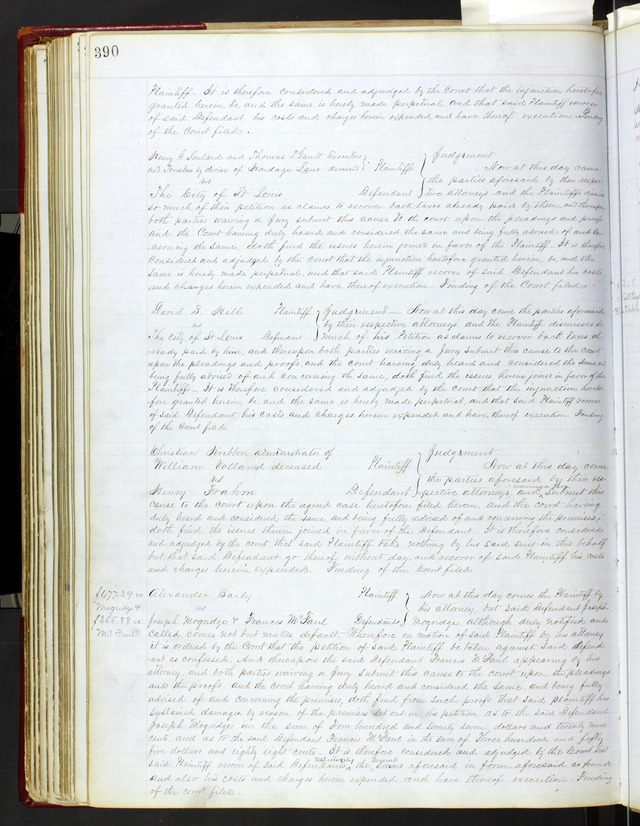 390
Plaintiff - It is therefore considered and adjudged by the Court that the injunction heretofore
granted herein be and the same is hereby made perpetual and that said Plaintiff recover
of said Defendant his costs and charges herein expended and have thereof execution Finding
of the Court filed.
Henry G Soulard and Thomas T Gantt Executors
and Trustees by devise of deceased } Plaintiffs } Judgment
vs
Now at this day came
the parties aforesaid by their respec-
The City of St Louis Defendant } tive attorneys and the Plaintiffs dismiss
so much of their petition as claims to recover back taxes already paid by them, and thereupon
both parties waiving a Jury submit this cause to the court upon the pleadings and proofs
and the Court having duly heard and considered the same and being fully advised of and con
cerning the same, doth find the issues herein joined in favor of the Plaintiff. It is therefore
Considered and adjudged by the Court that the injunction heretofore granted herein, be and the
same is hereby made perpetual, and that said Plaintiff recover of said Defendant his costs
and charges herein expended and have thereof execution. Finding of the Court filed -
David B. Hill Plaintiff } Judgment - Now at this day come the parties aforesaid
vs } by their respective attorneys, and the Plaintiff dismisses so
The City of St Louis Defendant } much of his Petition as claims to recover back taxes al
ready paid by him, and thereupon both parties waiving a Jury submit this cause to the court
upon the pleadings and proofs, and the court having duly heard and considered the same and
being fully advised of and concerning the same, doth find the issues herein joined in favor of the
Plaintiff - It is therefore considered and adjudged by the court that the injunction hereto-
fore granted herein, be and the same is hereby made perpetual, and that said Plaintiff recover
of said Defendant his costs and charges herein expended and have thereof execution Finding
of the Court filed
Christian administrator of
William Volland deceased Plaintiff } Judgment
vs
Now at this day come
the parties aforesaid by their res-
waiving a Jury
Henry Defendant } pective attorneys, and submit this
cause to the court upon the agreed case heretofore filed herein, and the Court having
duly heard and considered the same and being fully advised of and concerning the premises,
doth find the issues therein joined in favor of the Defendant. It is therefore considered
and adjudged by the court that said Plaintiff take nothing by his said suit in this behalf
but that said Defendant go thereof without day and recover of said Plaintiff his costs
and charges herein expended. Finding of the Court filed
$477.29 vs
Mogridge &
$355.88 vs
Alexander Baily Plaintiff } Now at this day comes the Plaintiff by
vs } his attorney, but said Defendant Joseph
Joseph Mogridge & Francis McFaul Defendants } Mogridge although duly notified and
called comes not but makes default - Wherefore on motion of said Plaintiff by his attorney
it is ordered by the Court that the petition of said Plaintiff be taken against said defend
ant as confessed. And thereupon the said Defendant Francis McFaul appearing by his
attorney, and both parties waiving a Jury submit this cause to the court upon the pleadings
and the proofs And the court having duly heard and considered the same, and being fully
advised of and concerning the premises, doth find from such proofs that said plaintiff has
sustained damages by reason of the premises set out in his petition as to the said Defendant
Joseph Mogridge in the sum of Four hundred and seventy seven dollars and twenty nine
cents and as to the said Defendant Francis McFaul in the sum of Three hundred and fifty
five dollars and eighty eight cents. It is therefore considered and adjudged by the Court that
respectively
said Plaintiff recover of said Defendants the sums aforesaid in form aforesaid as found
and also his costs and charges herein expended, and have thereof execution - Finding
of the court filed.